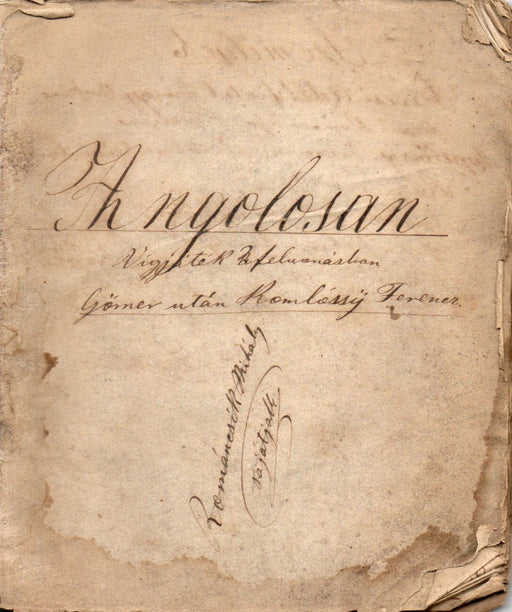 Angolosan
Vigjáték 2 felvonásban
Görner után Komlóssÿ Ferencz.
Románcsik Mihály
sajátja